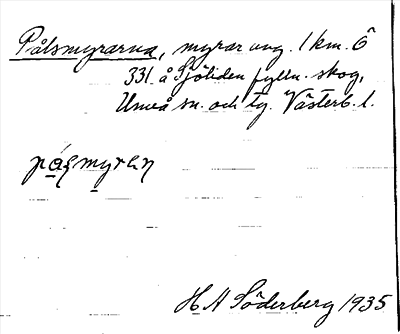 Pålsmyrarna, myrar ung. 1 km. Ö
331 å Sjöliden fylln. skog,
Umeå sn. och tg. Västerb. l.
H A Söderberg 1935